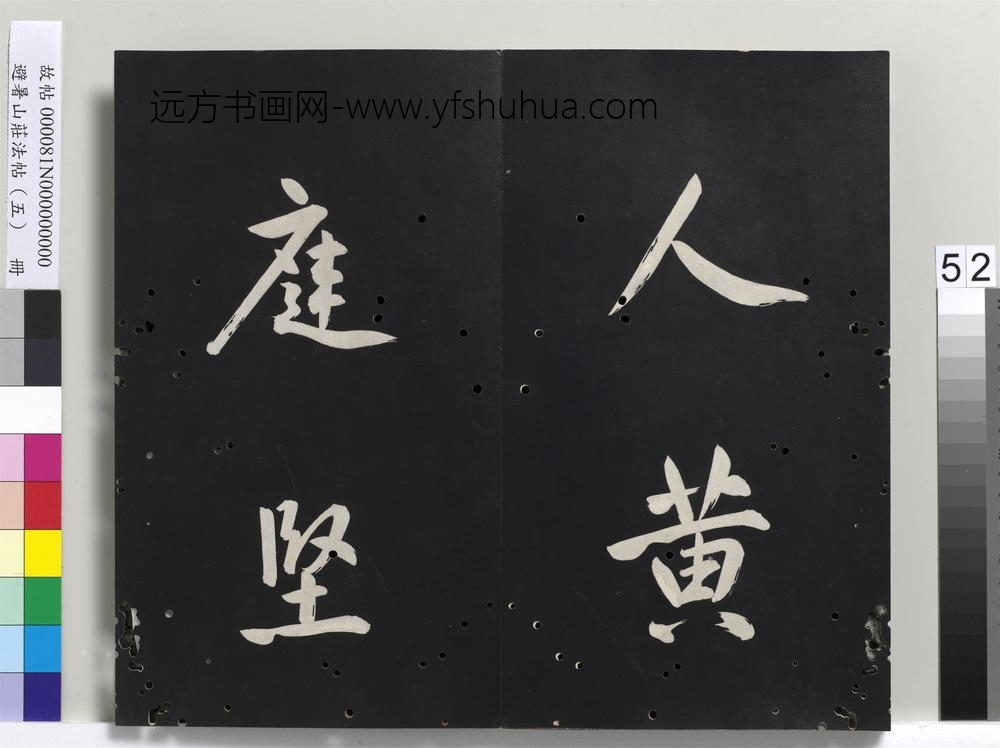 故帖000081N000000000
避暑山莊法帖（五） 冊
远方书画网-www.yfshuhua.com
人黄
庭堅
52